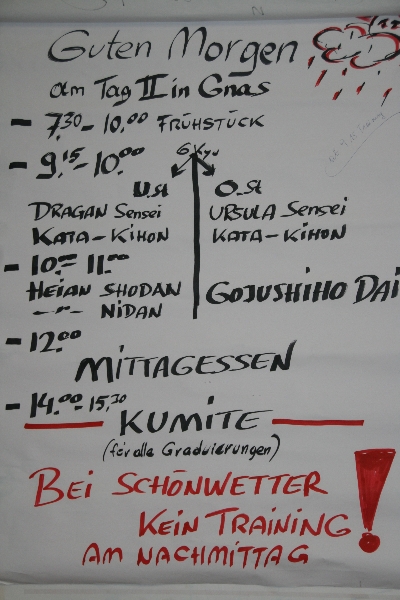 Guten Morgen
am Tag II in Gnas
- 7.30 - 10.00 FRÜHSTÜCK
- 9.15 - 10.00
6 Kyu
U.St
O.St
DRAGAN Sensei
KATA-KIHON
URSULA Sensei
KATA-KIHON
- 10.00 - 11.00
HEIAN SHODAN
-"- NIDAN
GOJUSHIHO DAI
- 12.00
MITTAGESSEN
- 14.00 - 15.30
KUMITE
(für alle Graduierungen)
BEI SCHÖNWETTER
KEIN TRAINING!
AM NACHMITTAG